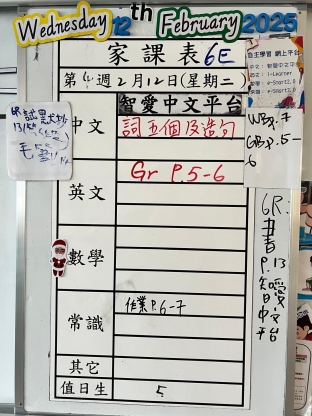 Wednesday 12th February 2025
家課表 6E
第 週 2月12日(星期二)
智愛中文平台
中文
詞五個及造句
英文
Gr P.5-6
數學
常識
作業 P.6-7
其它
值日生
5
自主學習 網上平台
i-Learner
e-Smart2.0
e-Smart2.0
P.7
GB P.5-
6
6R:
書
P.13
智愛
中文
平台